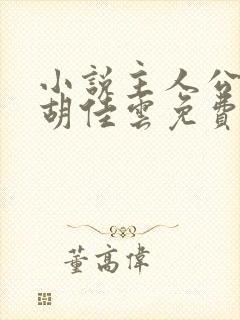 小說主人公
胡佳雲免費
董高偉